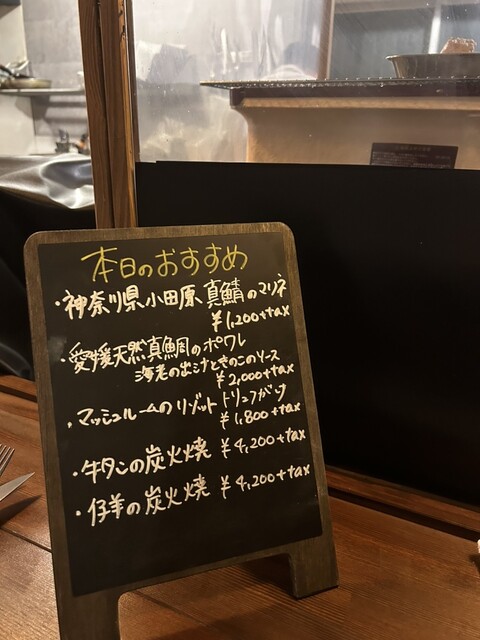 本日のおすすめ
・神奈川県小田原 真鯖のマリネ
¥1,200+tax
・愛媛天然真鯛のポワレ
海老の出汁ときのこのソース
¥2,000+tax
・マッシュルームのリゾット トリュフがけ
¥1,800+tax
・牛タンの炭火焼 ¥4,200+tax
・仔羊の炭火焼 ¥4,200+tax